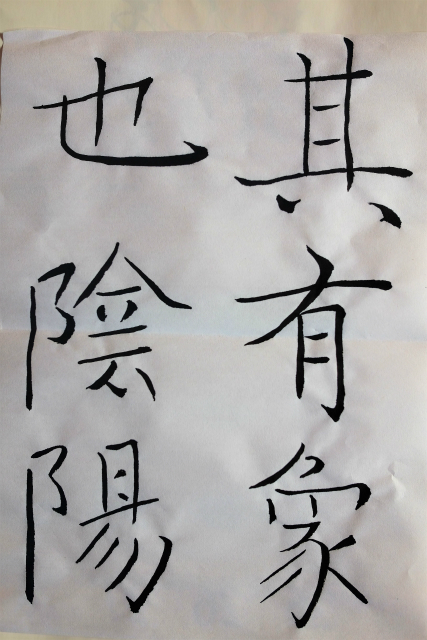 其有象
也陰陽